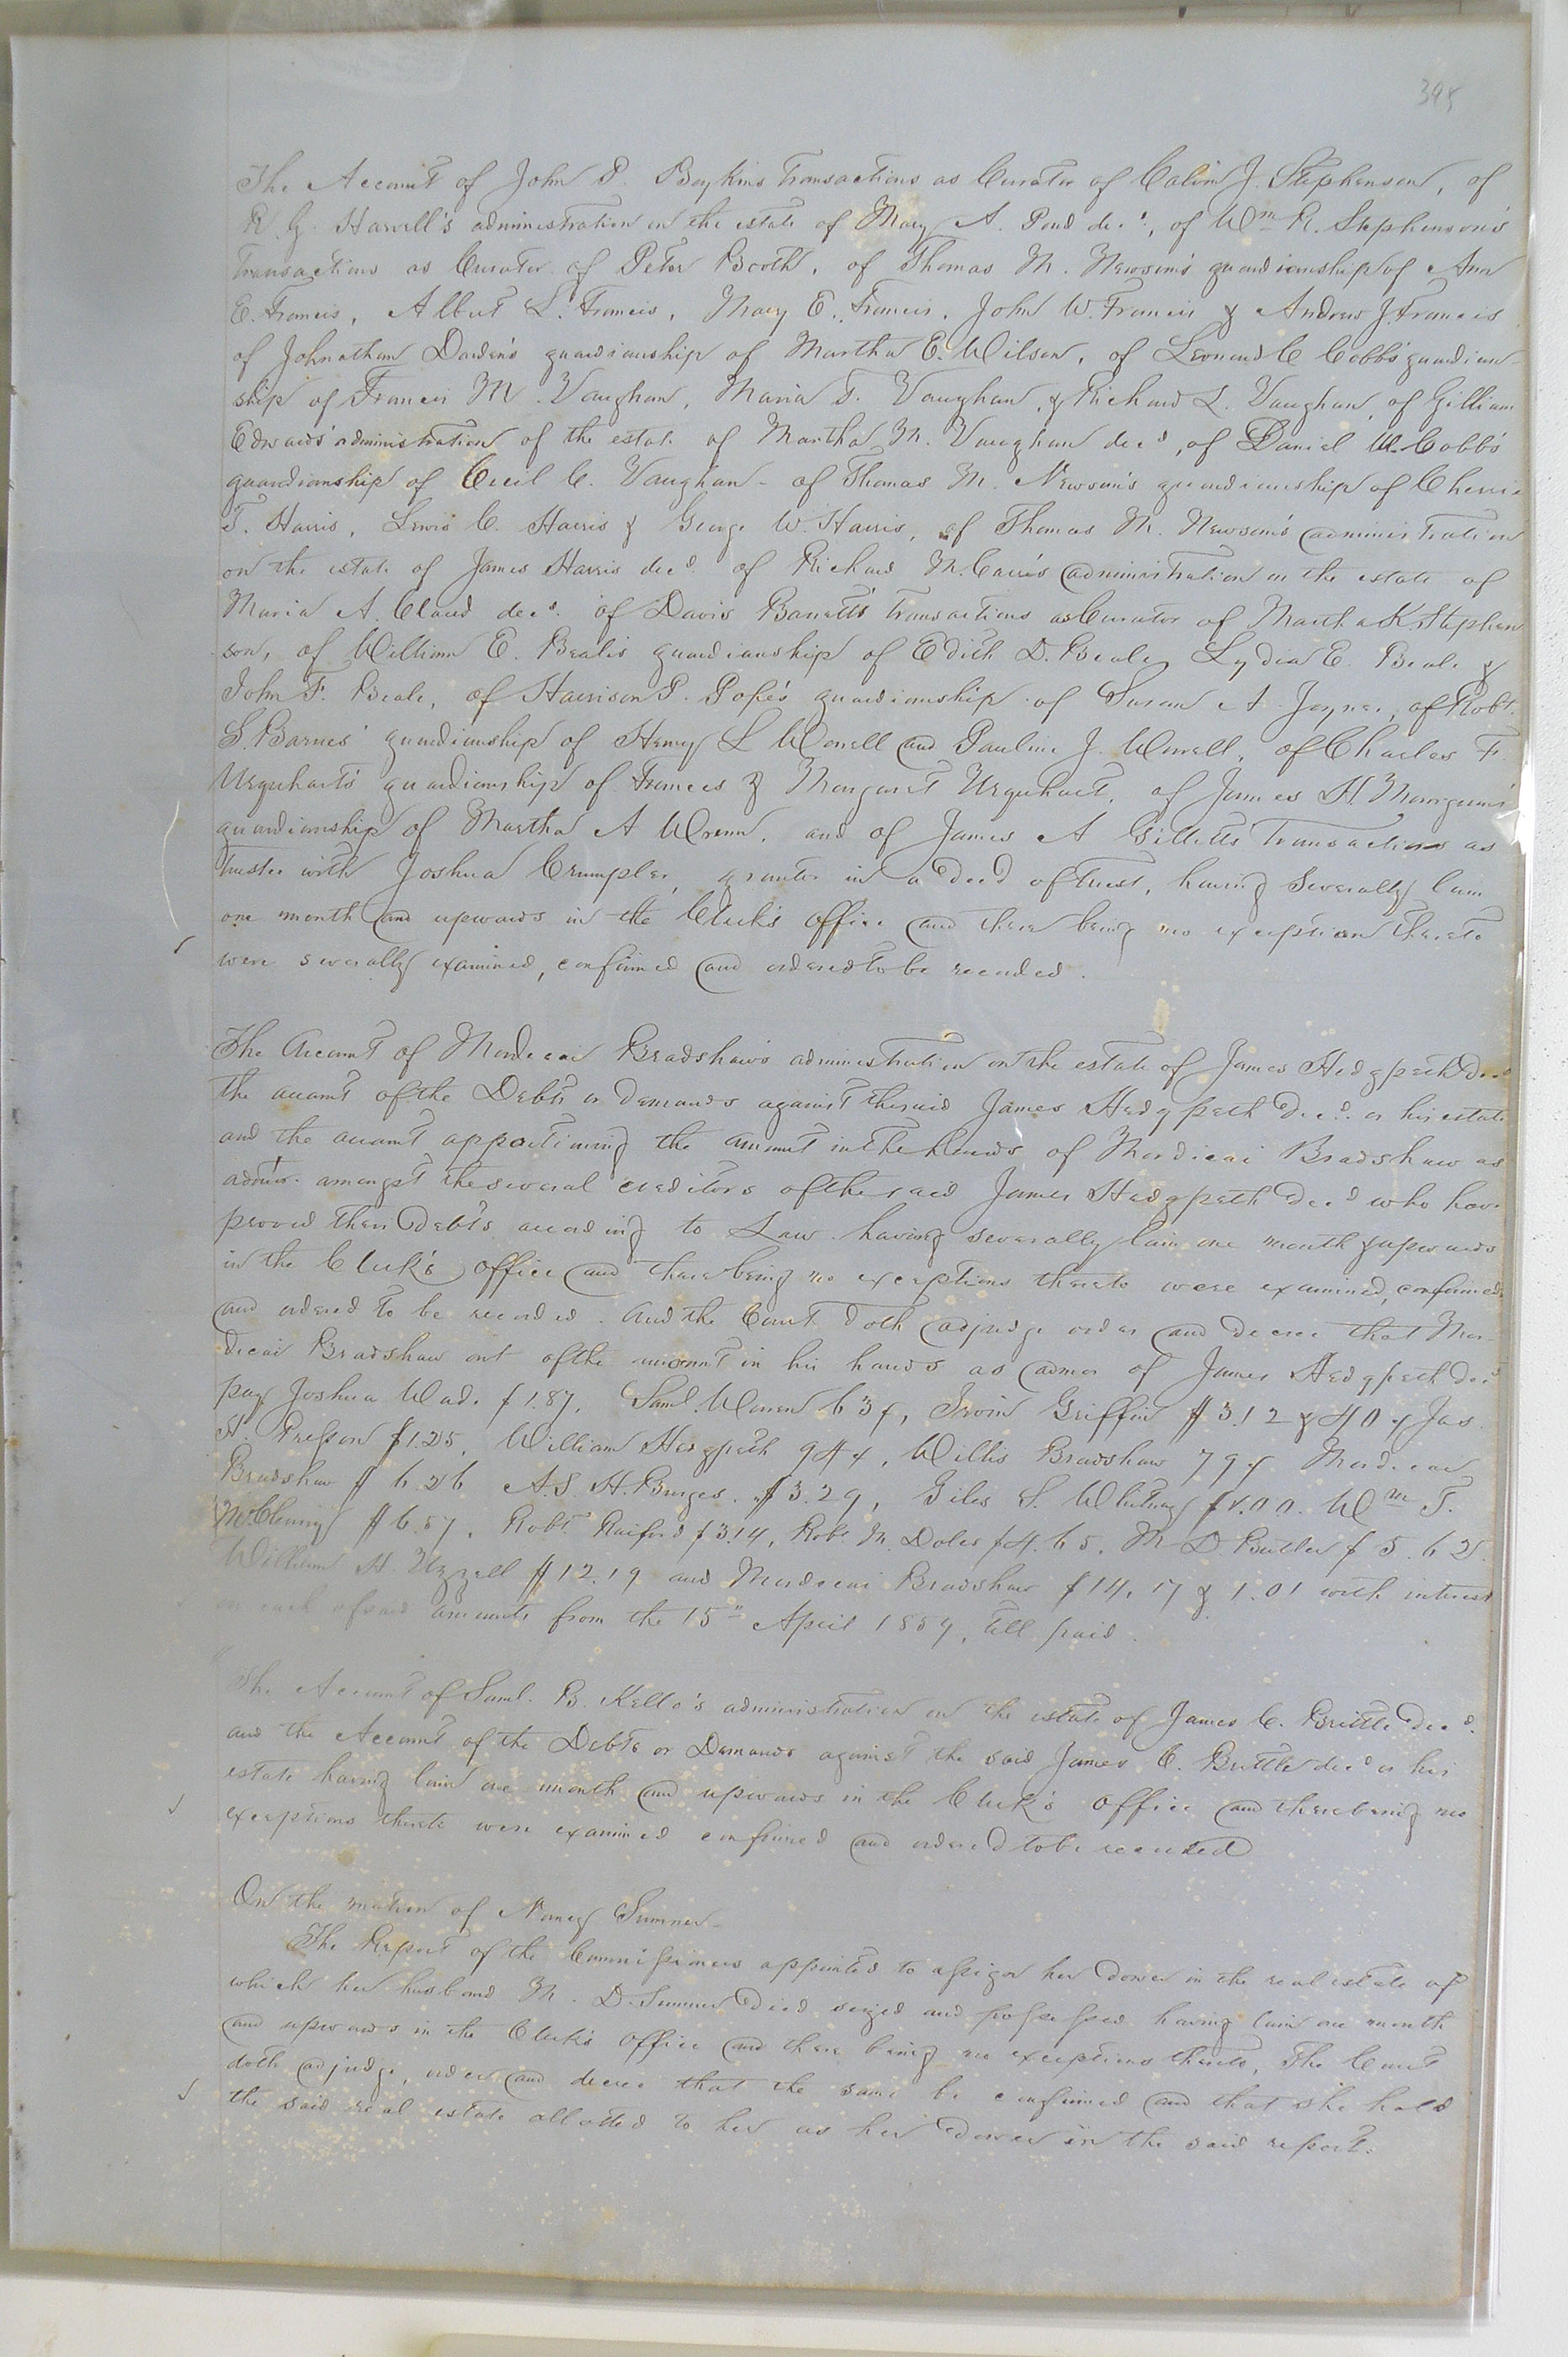 395
The Account of John P. Boykins Transactions as Curator of Calvin J. Stephenson, of
R. G. Harrell's administration on the estate of Mary A. Pond decd, of Wm R. Stephenson's
Transactions as Curator of Peter Booth, of Thomas M. Newsom's guardianship of Ann
E. Francis, Albert L. Francis, Mary E. Francis, John W. Francis & Andrew J. Francis
of Johnathan Darden's guardianship of Martha E. Wilson, of Leonard C Cobbs' guardian-
ship of Francis M. Vaughan, Maria T. Vaughan, & Richard L. Vaughan, of Gilliam
Edwards' administration of the estate of Martha M. Vaughan decd, of Daniel W. Cobb's
guardianship of Cecil C. Vaughan - of Thomas M. Newsom's guardianship of
T. Harris, Lewis C. Harris & George W. Harris, of Thomas M. Newsom's administration
on the estate of James Harris decd. of Richard M. administration on the estate of
Maria A. Claud decd. of Davis Barrett's Transactions as Curator of Martha K. Stephen
son, of William E. Beale's guardianship of Edith D. Beale, Lydia E. Beale &
John F. Beale, of Harrison P. Pope's guardianship of Susan A. Joyner, of Robt.
S. Barnes' guardianship of Henry L Worrell and Pauline J. Worrell, of Charles F.
Urquhart's guardianship of Frances & Margaret Urquhart, of James H. Mangum's
guardianship of Martha A Wrenn, and of James A Gilletts Transactions as
Trustee with Joshua Crumpler, grantor in a deed of trust, having Severally lain
one month and upwards in the Clerk's office and there being no exception thereto
were severally examined, confirmed and ordered to be recorded.
The Account of Mordecai Bradshaw's administration on the estate of James Hedgpeth Decd
the account of the Debts or Demands against the said James Hedgpeth Decd. or his estate
and the account apportioning the amount in the hands of Mordicai Bradshaw as
admr. amongst the several creditors of the said James Hedgpeth Decd who have
proved their Debts according to Law having severally lain one month & upwards
in the Clerk's office and there being no exceptions thereto were examined, confirmed
and ordered to be recorded. And the Court doth adjudge order and decree that Mor-
decai Bradshaw out of the amount in his hands as admor of James Hedgpeth decd
pay Joshua Wade $1.87, Saml. Warren 63¢, Irvin Griffin $3.12 & 40¢ Jas.
H. Presson $1.25, William Hedgpeth 94¢, Willis Bradshaw 79¢ Mordecai
Bradshaw $6.26 A.S. H. Burges. $3.29, Giles S. Whitney Wm T.
McClenny $6.57, Robt Raiford $3.14, Robt M. Doles $4.65, M D. Butler $5.62
William H. Uzzell $12.19 and Mordecai Bradshaw $14.17 & 1.01 with interest
on each of said amounts from the 15th April 1854, till paid.
The Account of Saml. B. Kello's administration on the estate of James C. Brittle Decd.
and the Account of the Debts or Demands against the said James C. Brittle decd or his
estate having lain one month and upwards in the Clerk's office and there being no
exceptions thereto were examined confirmed and ordered to be recorded
On the motion of Nancy Sumner-
The Report of the Commissioners appointed to assign her Dower in the real estate of
which her husband M. D. Sumner died seized and possessed having lain one month
and upwards in the Clerk's office and there being no exceptions thereto, The Court
doth adjudge, order and decree that the same be confirmed and that she hold
the said real estate allotted to her as her Dower in the said report.